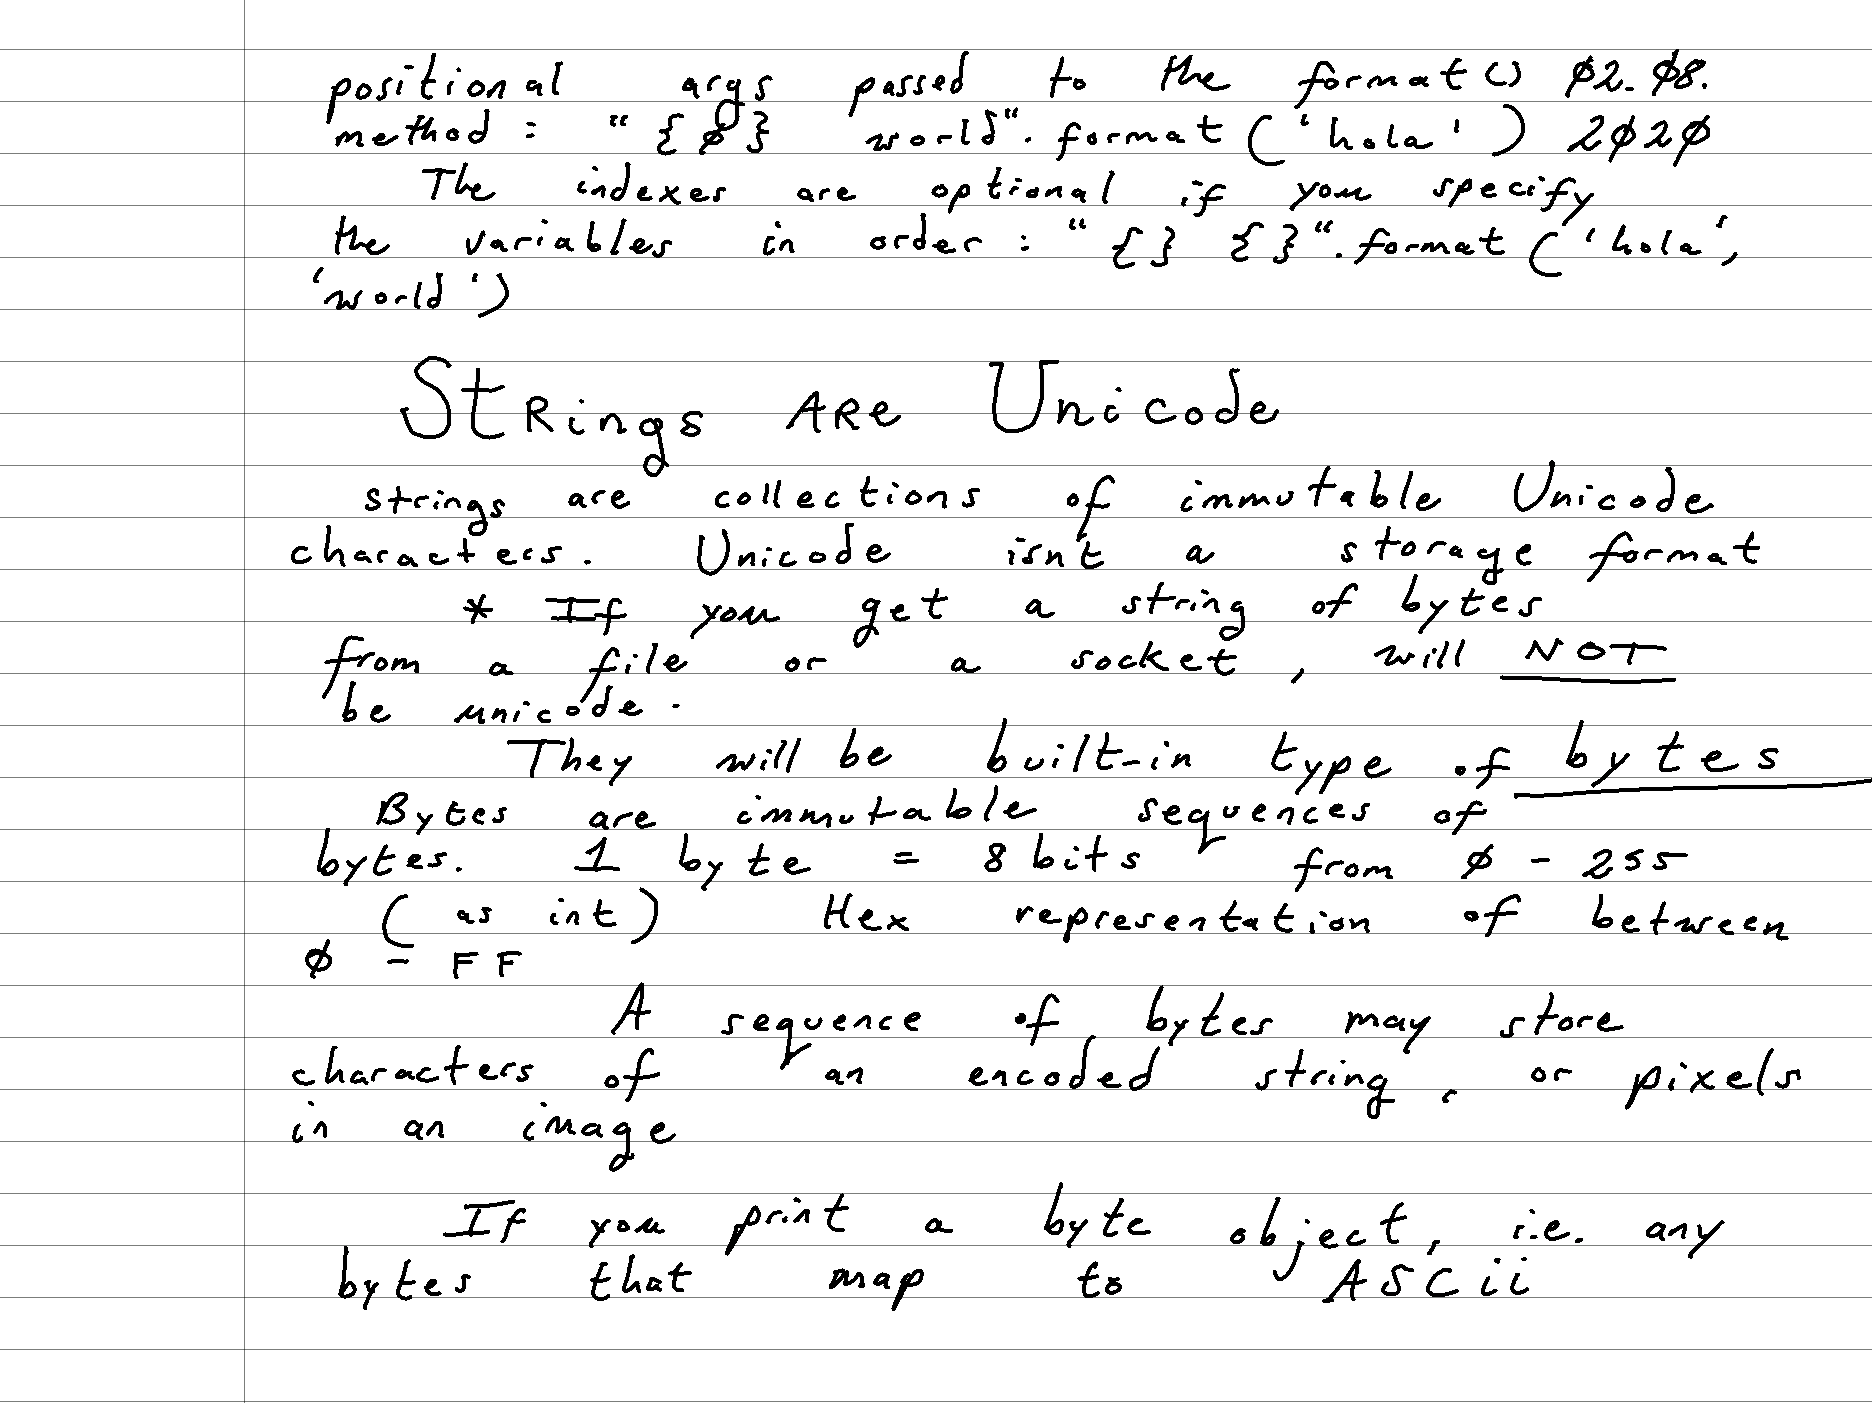 positional args passed to the format() ø2.ø8.
method : "{ø} world".format('hola') 2ø2ø
The indexes are optional if you specify
the variables in order : "{} {}".format('hola',
'world')
Strings ARe Unicode
strings are collections of immutable Unicode
characters. Unicode isn't a storage format
* If you get a string of bytes
from a file or a socket, will NOT
be unicode.
They will be built-in type of bytes
Bytes are immutable sequences of
bytes. 1 byte = 8 bits from ø - 255
(as int) Hex representation of between
ø - FF
A sequence of bytes may store
characters of an encoded string, or pixels
in an image
If you print a byte object, i.e. any
bytes that map to ASCii